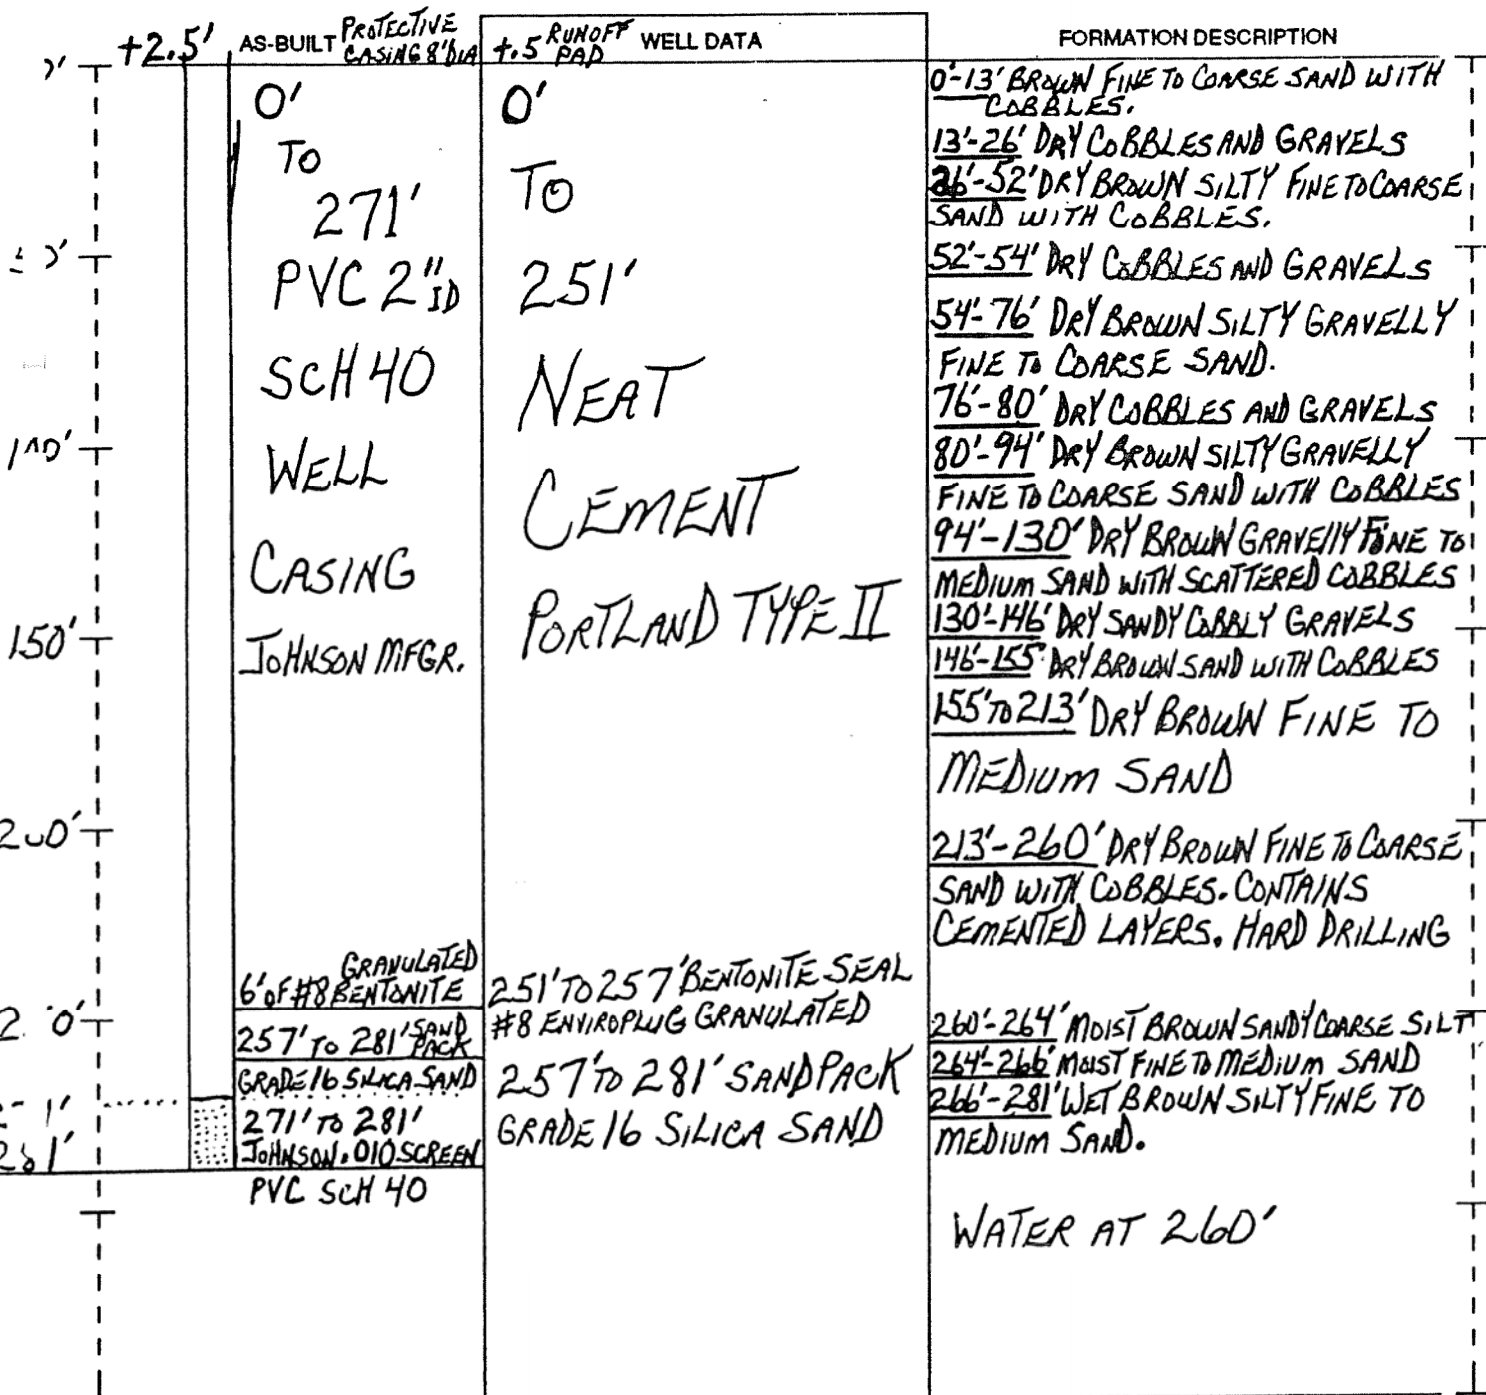 +2.5' AS-BUILT PROTECTIVE CASING 8"DIA
+.5 RUNOFF PAD WELL DATA
FORMATION DESCRIPTION
0'
TO
271'
PVC 2" ID
SCH 40
WELL
CASING
JOHNSON MFGR.
GRANULATED
6' OF #8 BENTONITE
257' TO 281' SAND PACK
GRADE 16 SILICA SAND
271' TO 281'
JOHNSON .010 SCREEN
PVC SCH 40
0'
TO
251'
NEAT
CEMENT
PORTLAND TYPE II
251' TO 257' BENTONITE SEAL
#8 ENVIROPLUG GRANULATED
257' TO 281' SANDPACK
GRADE 16 SILICA SAND
0'-13' BROWN FINE TO COARSE SAND WITH
COBBLES.
13'-26' DRY COBBLES AND GRAVELS
26'-52' DRY BROWN SILTY FINE TO COARSE
SAND WITH COBBLES.
52'-54' DRY COBBLES AND GRAVELS
54'-76' DRY BROWN SILTY GRAVELLY
FINE TO COARSE SAND.
76'-80' DRY COBBLES AND GRAVELS
80'-94' DRY BROWN SILTY GRAVELLY
FINE TO COARSE SAND WITH COBBLES
94'-130' DRY BROWN GRAVELLY FINE TO
MEDIUM SAND WITH SCATTERED COBBLES
130'-146' DRY SANDY COBBLY GRAVELS
146'-155' DRY BROWN SAND WITH COBBLES
155' TO 213' DRY BROWN FINE TO
MEDIUM SAND
213'-260' DRY BROWN FINE TO COARSE
SAND WITH COBBLES. CONTAINS
CEMENTED LAYERS. HARD DRILLING
260'-264' MOIST BROWN SANDY COARSE SILT
264'-266' MOIST FINE TO MEDIUM SAND
266'-281' WET BROWN SILTY FINE TO
MEDIUM SAND.
WATER AT 260'
150'
200'
281'